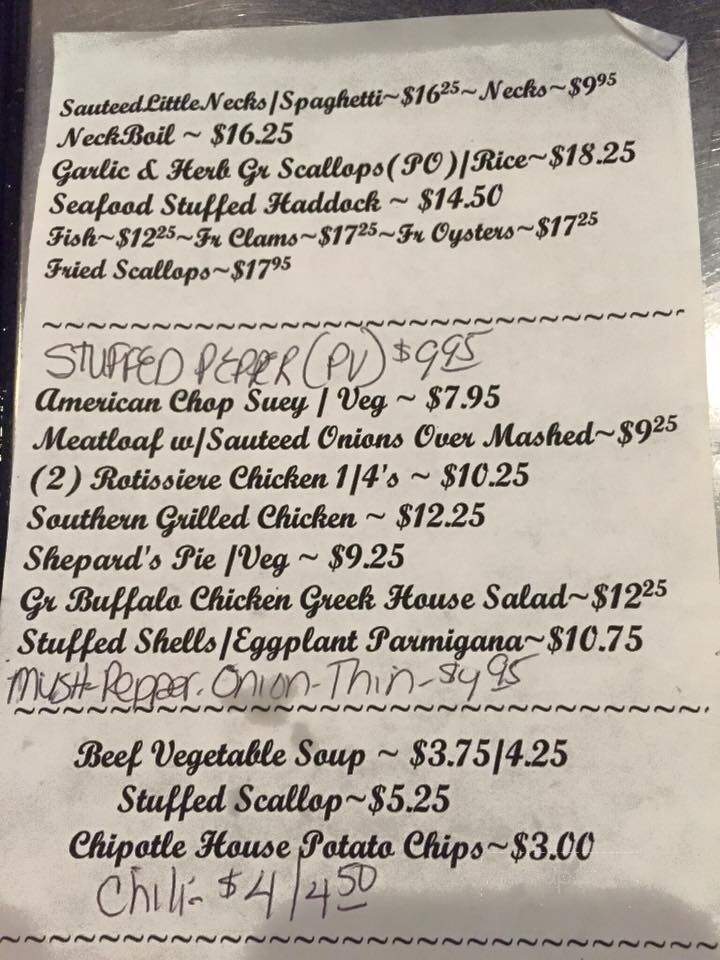 SauteedLittleNecks/Spaghetti~$16²⁵~Necks~$9⁹⁵
NeckBoil ~ $16.25
Garlic & Herb Gr Scallops(PO)/Rice~$18.25
Seafood Stuffed Haddock ~ $14.50
Fish~$12²⁵~Fr Clams~$17²⁵~Fr Oysters~$17²⁵
Fried Scallops~$17⁹⁵
~~~~~~~~~~~~~~~~~~~~~~~~~~~~~~
STUFFED PEPPER (PV) $9.95
American Chop Suey / Veg ~ $7.95
Meatloaf w/Sauteed Onions Over Mashed~$9²⁵
(2) Rotissiere Chicken 1/4's ~ $10.25
Southern Grilled Chicken ~ $12.25
Shepard's Pie /Veg ~ $9.25
Gr Buffalo Chicken Greek House Salad~$12²⁵
Stuffed Shells/Eggplant Parmigana~$10.75
Mush-Pepper-Onion-Thin-$4 95
~~~~~~~~~~~~~~~~~~~~~~~~~~~~~~
Beef Vegetable Soup ~ $3.75/4.25
Stuffed Scallop~$5.25
Chipotle House Potato Chips~$3.00
Chili- $4/4⁵⁰
~~~~~~~~~~~~~~~~~~~~~~~~~~~~~~